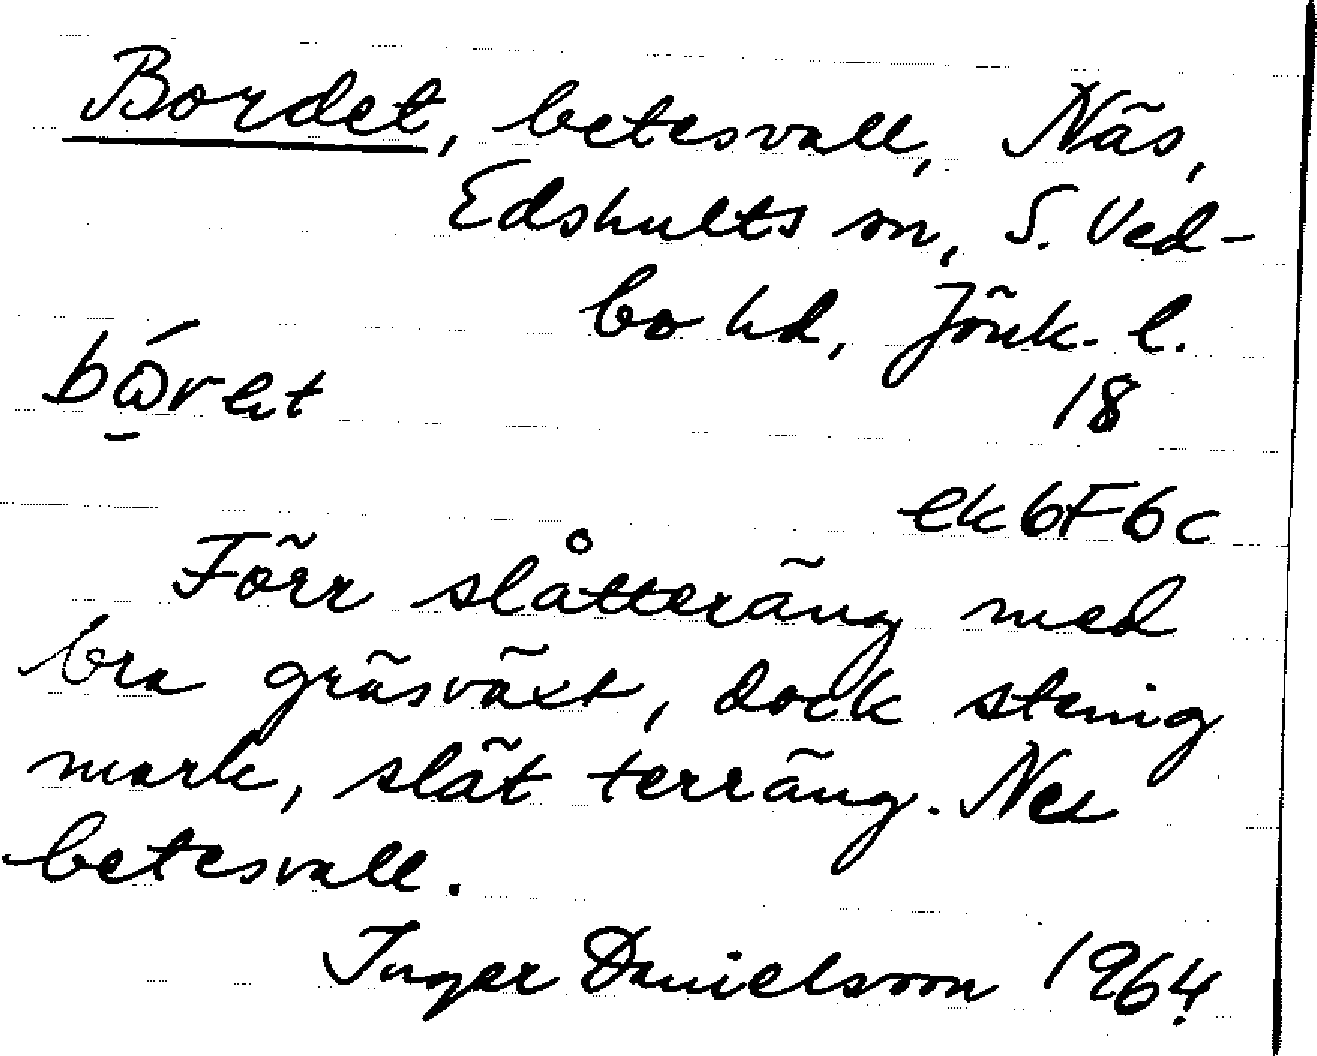 Bordet, betesvall, Näs,
Edshults sn, S. Ved-
bo hd, Jönk. l.
18
ek 6F6c
Förr slåtteräng med
bra gräsväxt, dock stenig
mark, slät terräng. Nu
betesvall.
Inger Danielsson 1964